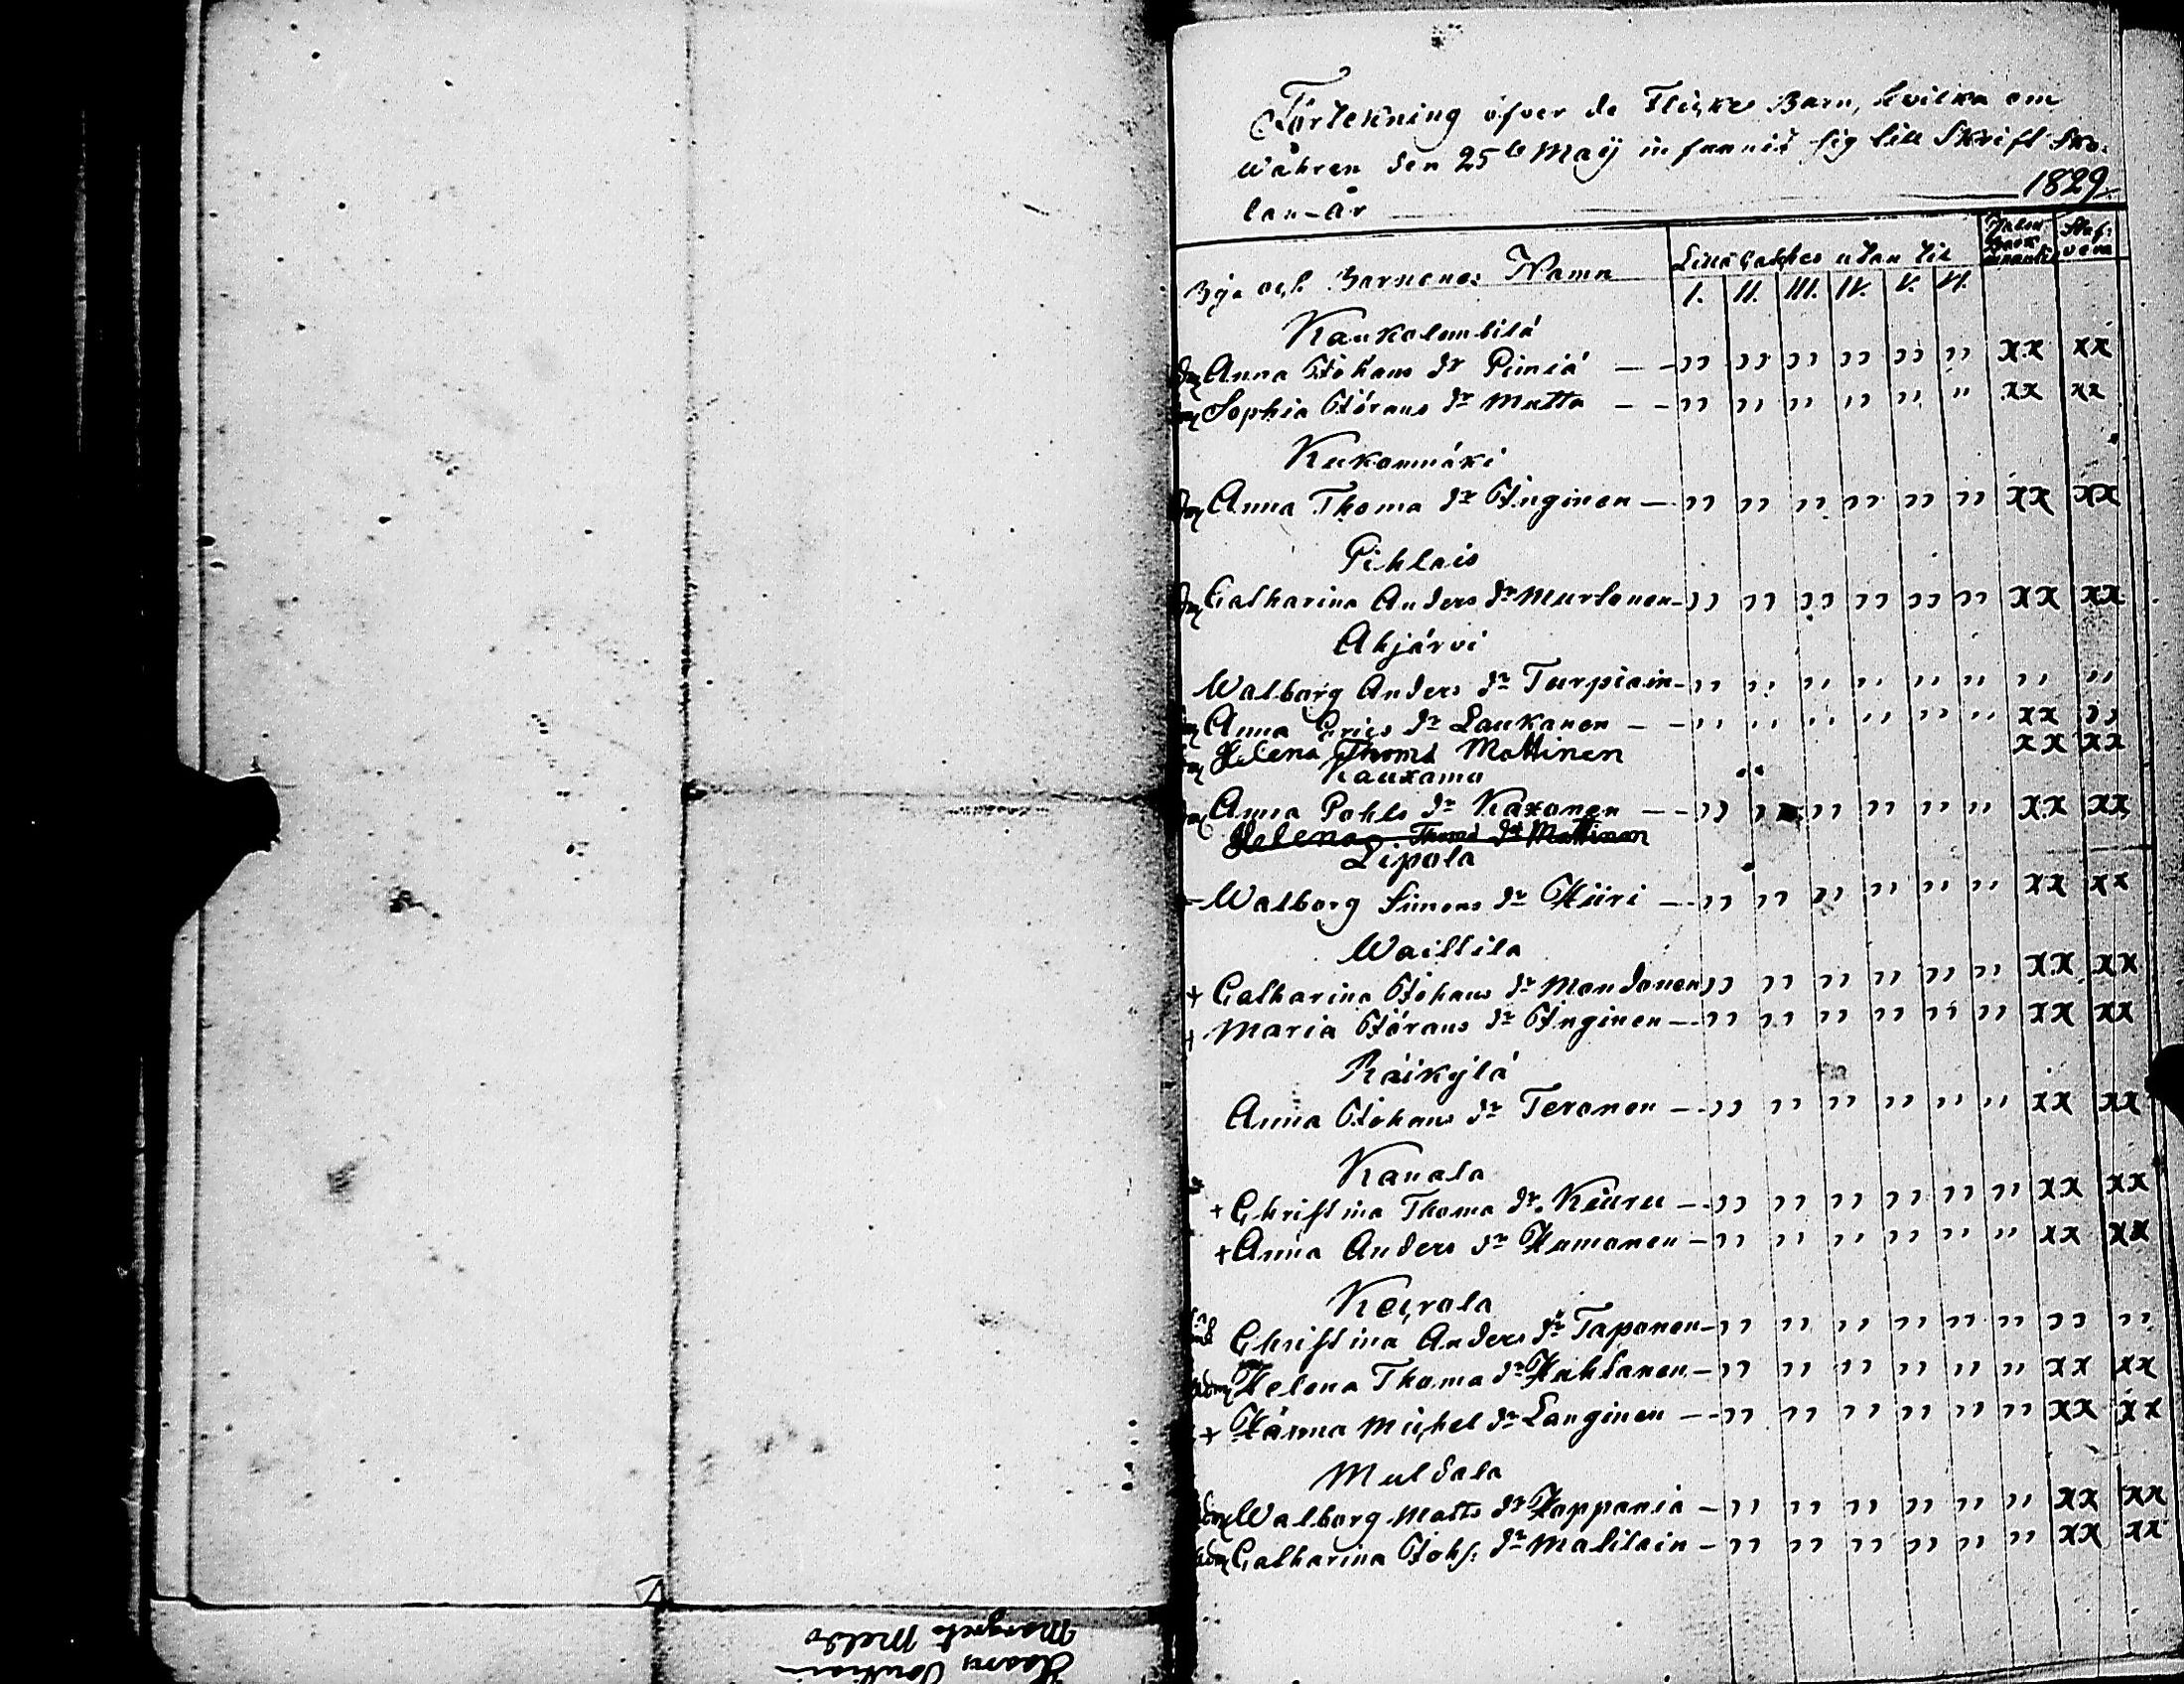 Förtekning öfver de Flicke Barn, hvilka om
wåhren den 25te Maÿ infunnit sig till Skrift Sko-
lan år 1829.
Bÿa och Barnenes Namn
utan till
I. II. III. IV. V. VI.
Kaukolembilä
Adm Anna Johans dr Piiniä — — ,, ,, ,, ,, ,, ,, xx xx
Adm Sophia Görans dr Mutta — — ,, ,, ,, ,, ,, ,, xx xx
Kukonmäki
Adm Anna Thoma dr Inginen — ,, ,, ,, ,, ,, ,, xx xx
Pihlais
Adm Catharina Anders dr Murtonen — ,, ,, ,, ,, ,, ,, xx xx
Ahjärvi
Walborg Anders dr Turpiain — ,, ,, ,, ,, ,, ,, ,, ,,
Adm Anna Erics dr Laukanen — — ,, ,, ,, ,, ,, ,, xx ,,
Adm Helena Thoma Mattinen xx xx
Kauxamo
Adm Anna Pohls dr Kaxonen — — ,, ,, ,, ,, ,, xx xx
Helena Thoma dr Mattinen
Lipola
Walborg Simons dr Hiiri — — ,, ,, ,, ,, ,, ,, xx xx
Waittila
+ Catharina Johans dr Mondonen ,, ,, ,, ,, ,, ,, xx xx
+ Maria Görans dr Inginen — ,, ,, ,, ,, ,, ,, xx xx
Räikÿlä
Anna Johans dr Teronen — ,, ,, ,, ,, ,, ,, xx xx
Kanala
+ Christina Thoma dr Kiuru — ,, ,, ,, ,, ,, ,, xx xx
+ Anna Anders dr Hamonen — ,, ,, ,, ,, ,, ,, xx xx
Keirola
Christina Anders dr Taponen — ,, ,, ,, ,, ,, ,, ,, ,,
Adm Helena Thoma dr Huhtanen — ,, ,, ,, ,, ,, ,, xx xx
+ Hänna Michel dr Langinen — ,, ,, ,, ,, ,, ,, xx xx
Muldala
Adm Walborg Matts dr Happonia — ,, ,, ,, ,, ,, ,, xx xx
Adm Catharina Johs. dr Malilain — ,, ,, ,, ,, ,, ,, xx xx
Margreta